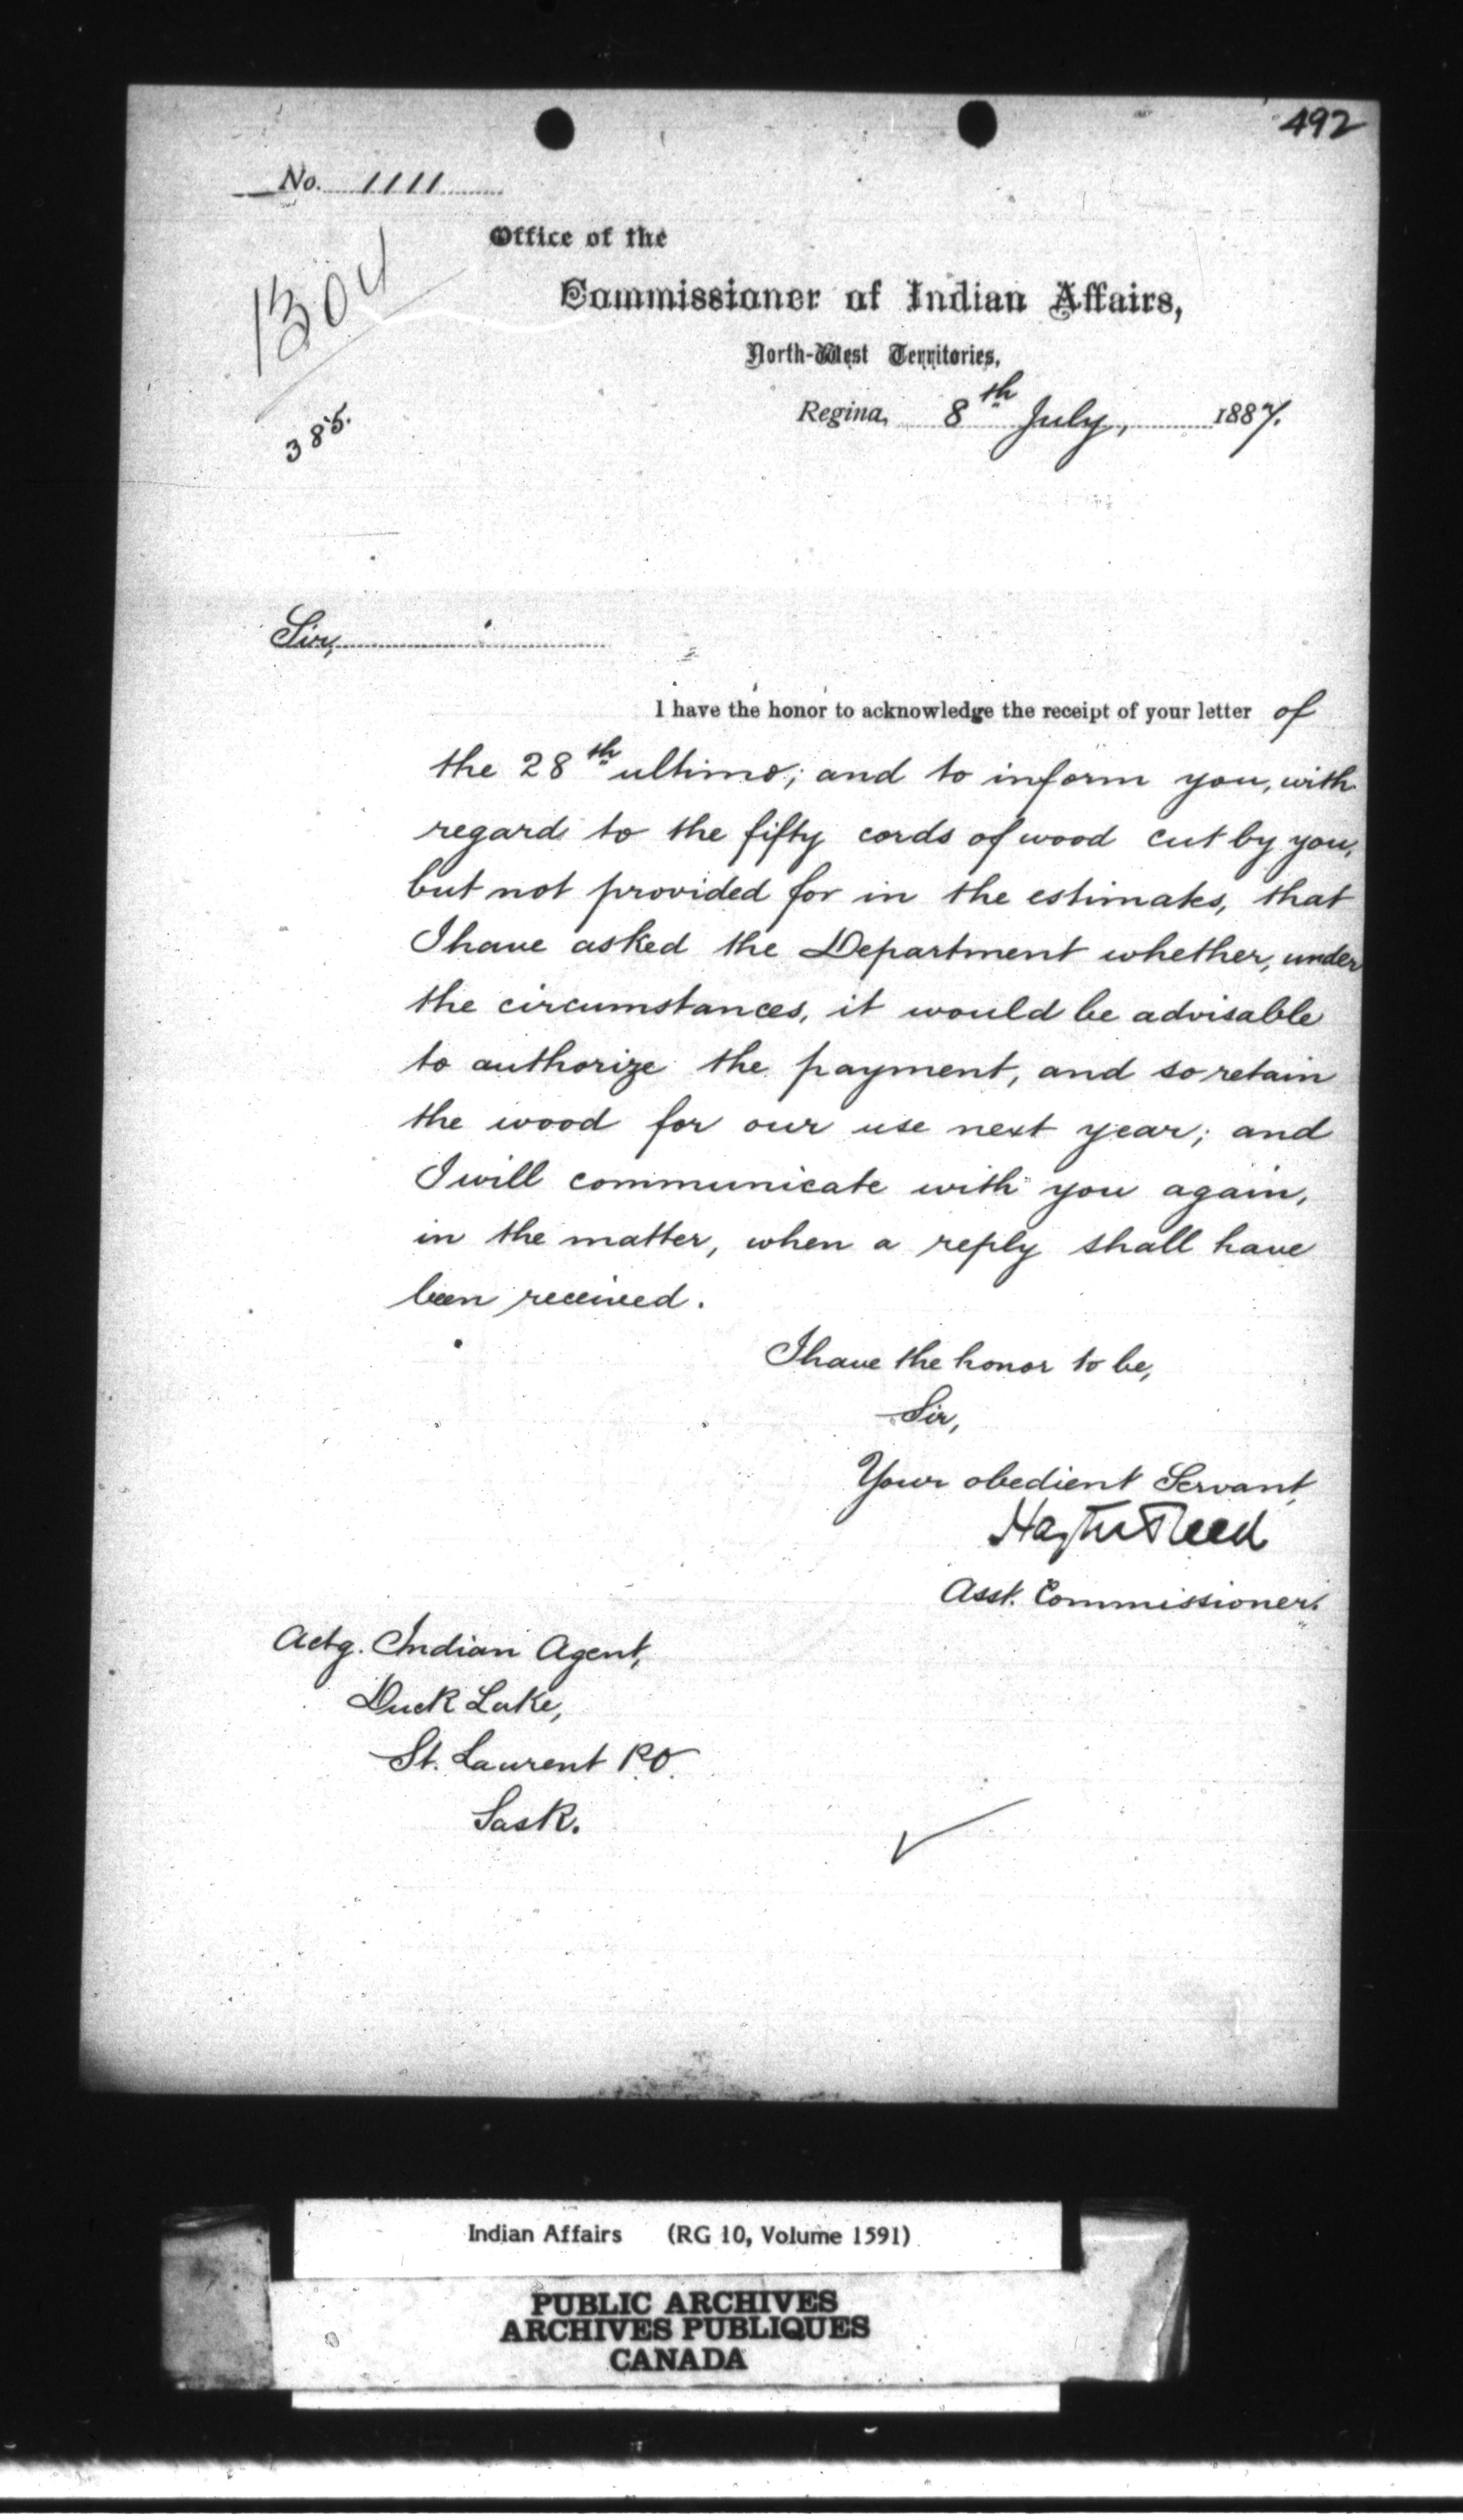 492
No. 1111
1304
385.
Office of the
Commissioner of Indian Affairs,
North-West Territories,
Regina, 8th July, 1887.
Sir,
I have the honor to acknowledge the receipt of your letter of
the 28th ultimo; and to inform you, with
regard to the fifty cords of wood cut by you,
but not provided for in the estimates, that
I have asked the Department whether, under
the circumstances, it would be advisable
to authorize the payment, and so retain
the wood for our use next year; and
I will communicate with you again,
in the matter, when a reply shall have
been received.
I have the honor to be,
Sir,
Your obedient Servant,
Hayter Reed
Asst. Commissioner.
Actg. Indian Agent,
Duck Lake,
St. Laurent P.O.
Sask.
Indian Affairs (RG 10, Volume 1591)
PUBLIC ARCHIVES
ARCHIVES PUBLIQUES
CANADA